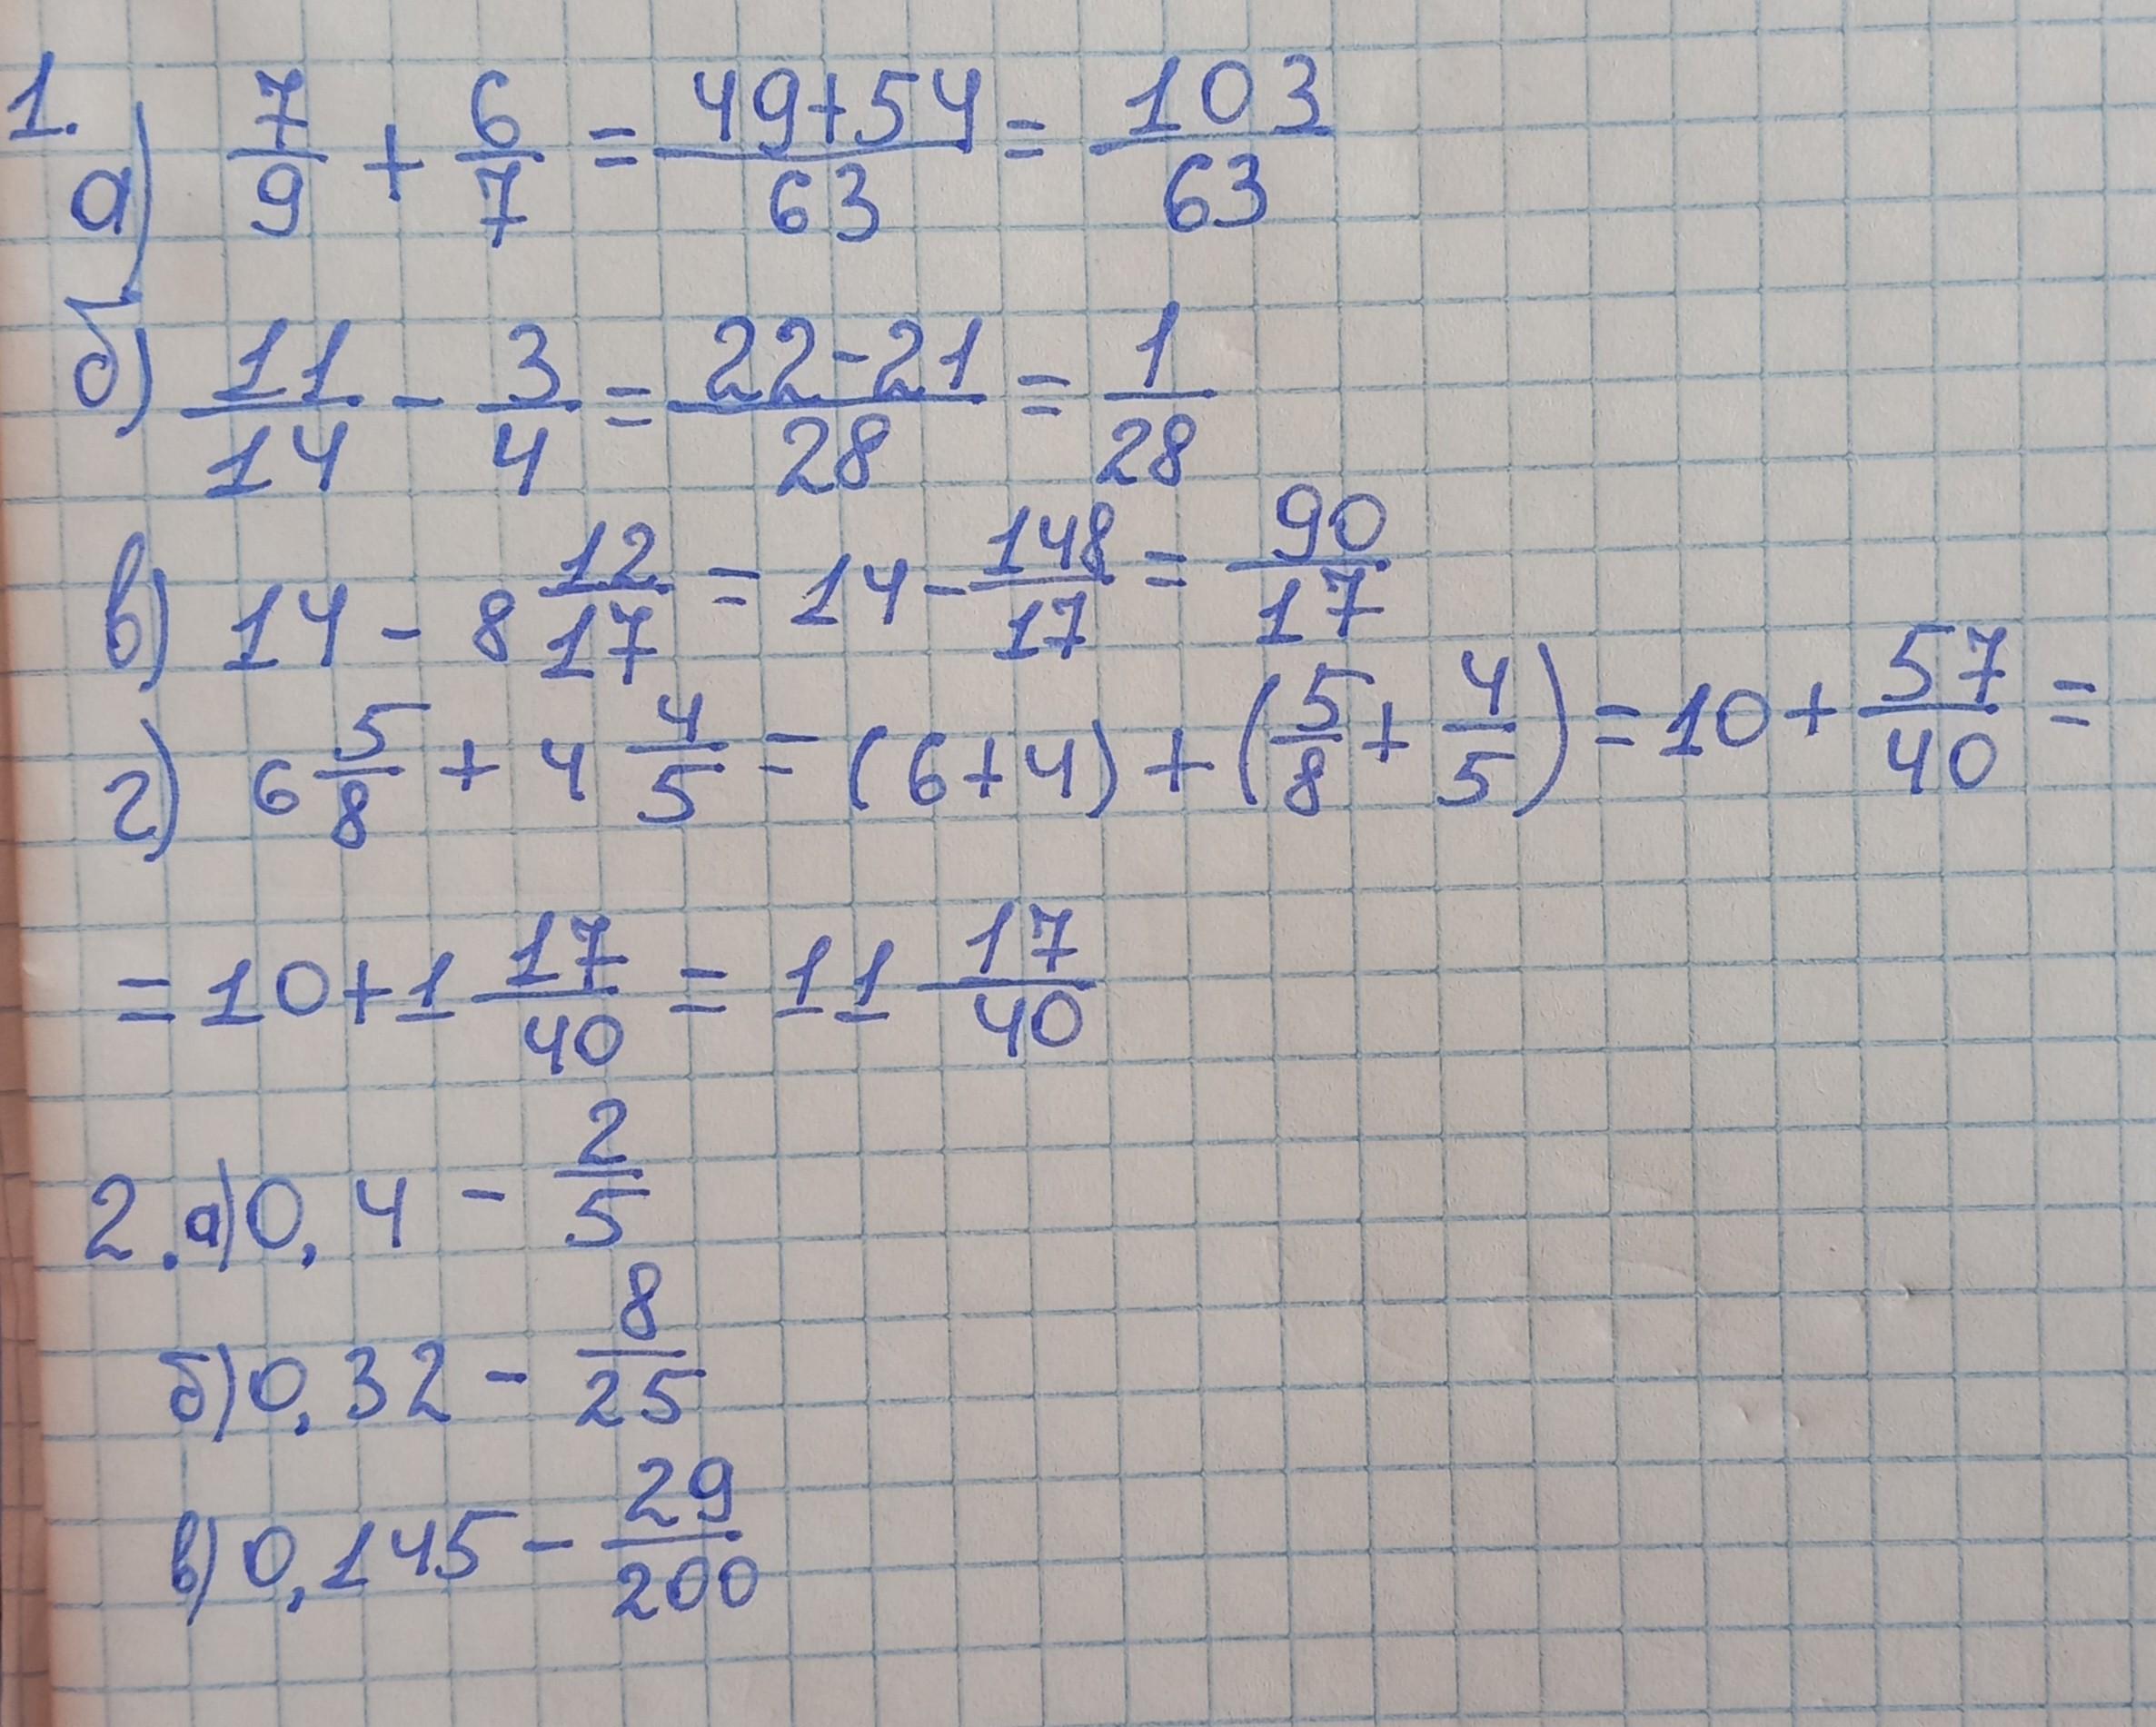 1.
а) 7/9 + 6/7 = 49+54/63 = 103/63
б) 11/14 - 3/4 = 22-21/28 = 1/28
в) 14 - 8 12/17 = 14 - 148/17 = 90/17
г) 6 5/8 + 4 4/5 = (6+4) + (5/8 + 4/5) = 10 + 57/40 =
= 10 + 1 17/40 = 11 17/40
2. а) 0,4 - 2/5
б) 0,32 - 8/25
в) 0,145 - 29/200